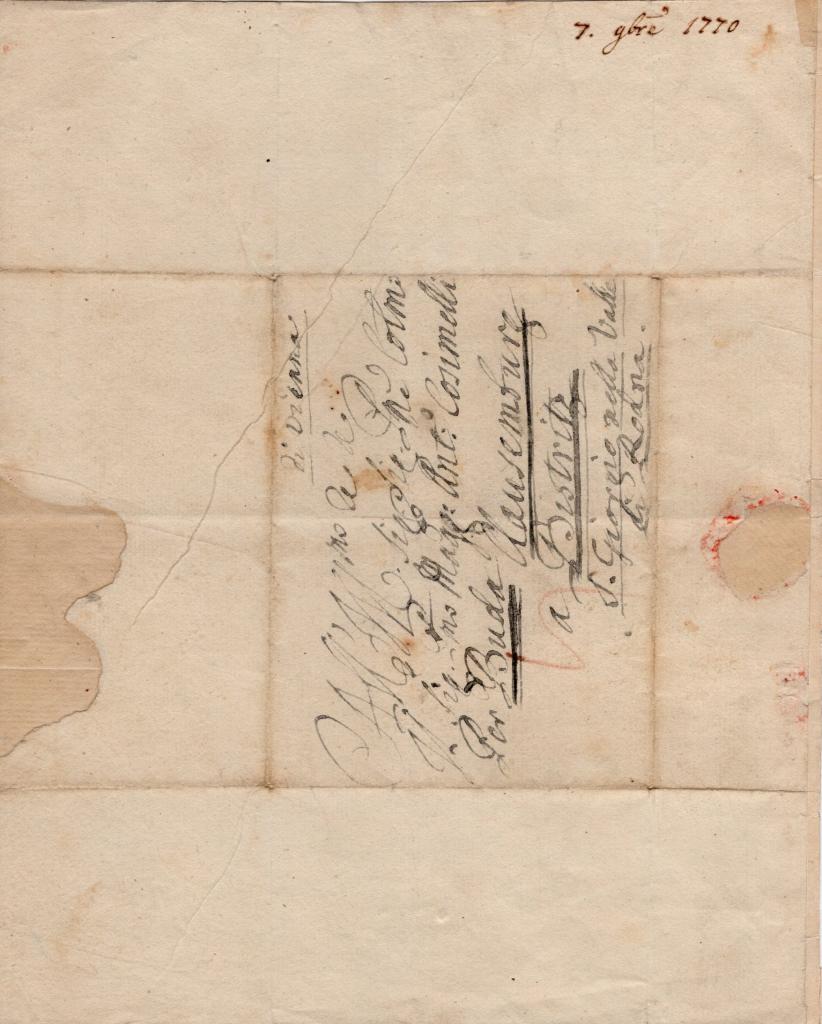 7. 9bre 1770
di Vienna
All'
Sig. Sig. Pne Colmo
Il Sig. Magg: Ant: Cosimelli
Per Buda Clausembourg
a Bistritz
S. Giorgio nella Valle
di Rodna.